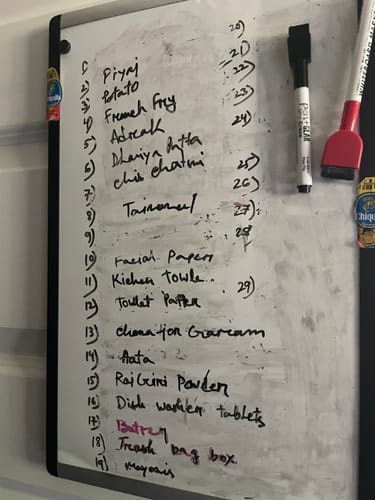 1)
2) Piyaj
3) Potato
4) French Fry
5) Adrak
6) Dhaniya Patta
7) chis chatni
8 Tainomel
9)
10) Facial Paper
11) Kichen Towle
12) Towlet Paper
13) chana for Garcam
14) Aata
15) RajGiri Powder
16) Dish washer tablets
17) Butter
18) Trash bag box
19) mayonis
20)
21)
22)
23)
24)
25)
26)
27)
28
29)
Chiquita